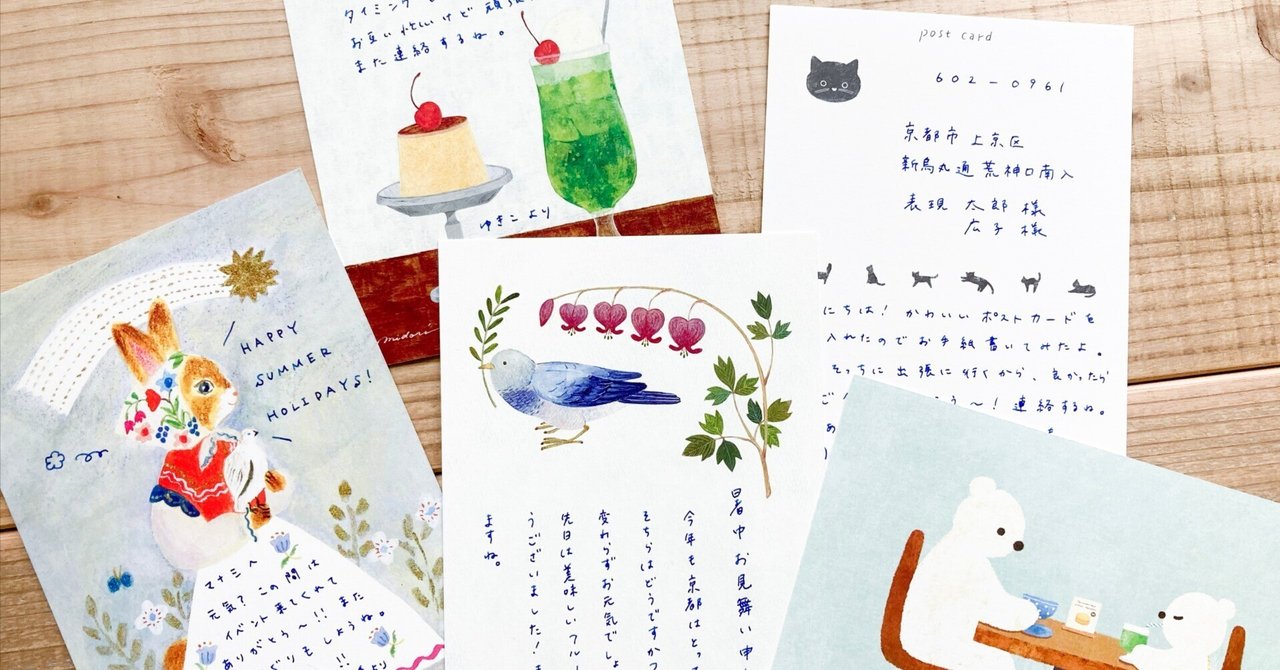 タイミング
お互い忙しいけど頑張
また連絡するね。
ゆきこより
midori
post card
602-0961
京都市 上京区
新烏丸通 荒神口南入
表現 太郎 様
広子 様
にちは! かわいい ポストカードを
入れたので お手紙 書いてみたよ。
そっちに 出張に 行くから、良かったら
〜! 連絡するね。
HAPPY
SUMMER
HOLIDAYS!
マナミへ
元気? この間は
イベント 来てくれて
ありがとう〜!! また
しようね。
!!
より
暑中お見舞い申
今年も京都はとっ
そちらはどうですか
変わらずお元気でし
先日は美味しいフルー
うございました!
ますね。